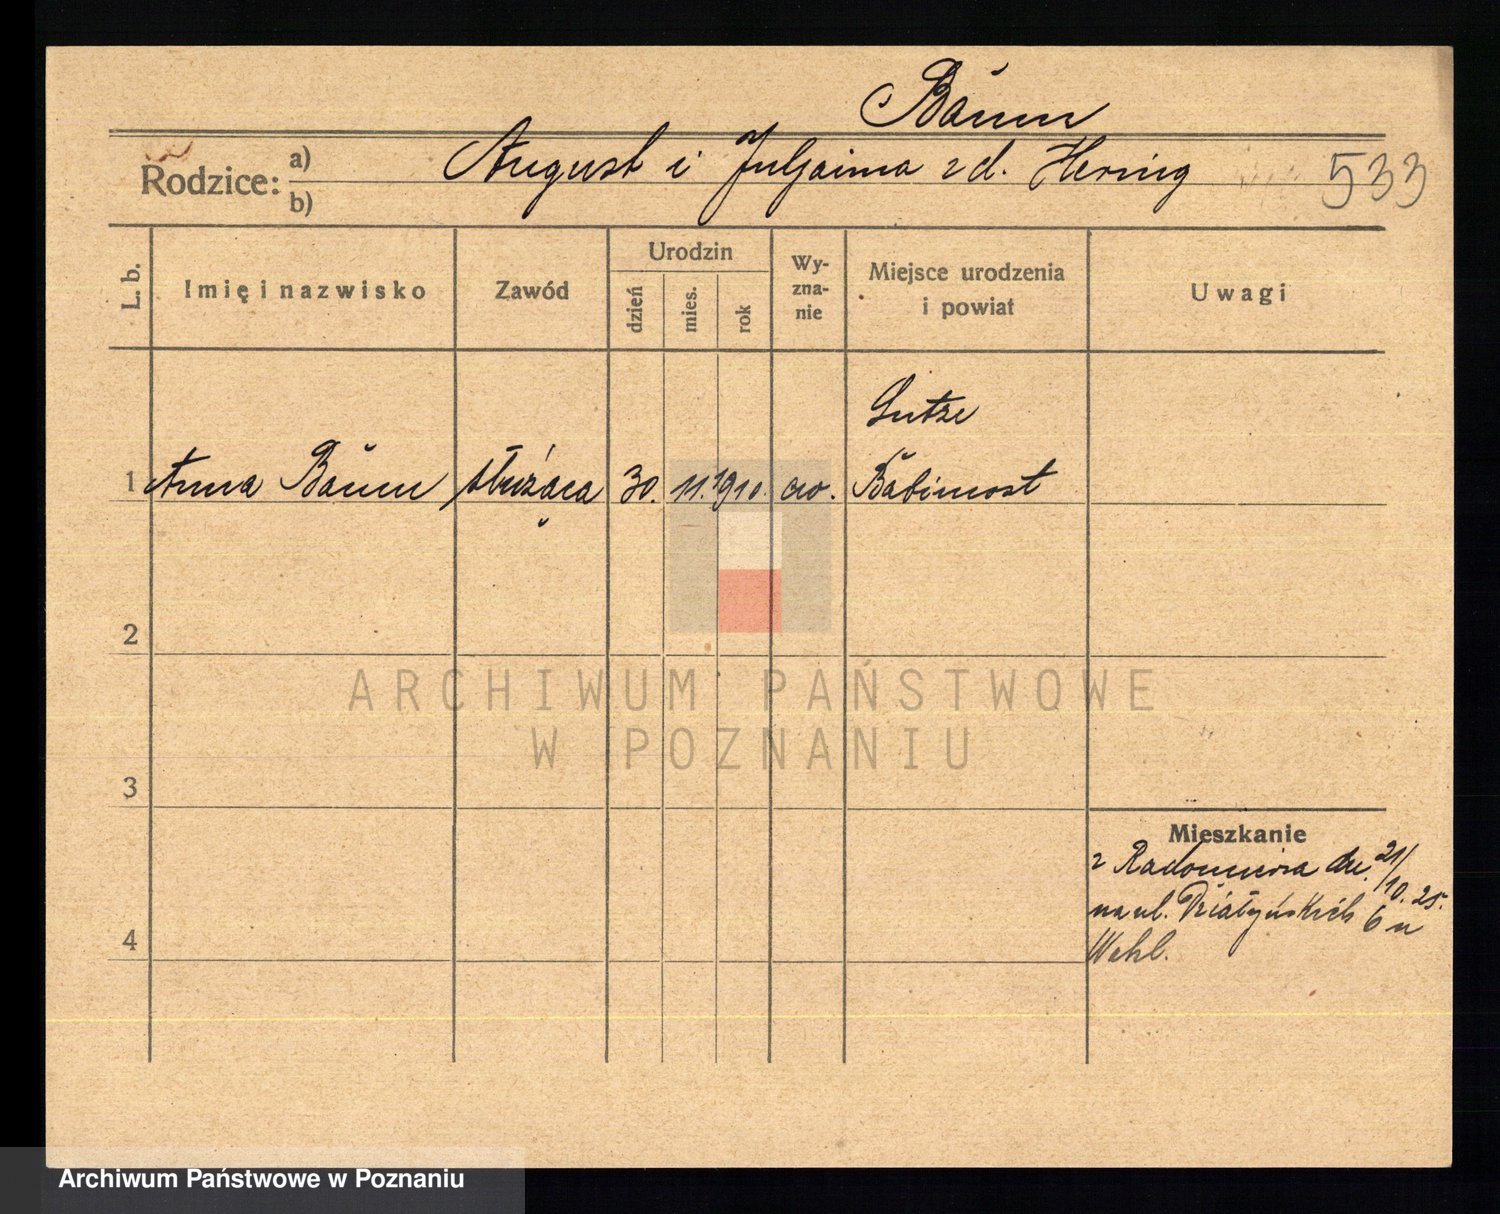 Baum
Rodzice: a) August i Juljanna zd. Hering
b)
533
L. b.
Imię i nazwisko
Zawód
Urodzin
dzień
mies.
rok
Wy-
zna-
nie
Miejsce urodzenia
i powiat
Uwagi
Lutze
1 Anna Baum służąca 30. 11. 1910. ew. Babimost
2
3
4
Mieszkanie
z Radomierza dn. 21/10. 25.
na ul. Działyńskich 6 u
ARCHIWUM PAŃSTWOWE
W POZNANIU
Archiwum Państwowe w Poznaniu